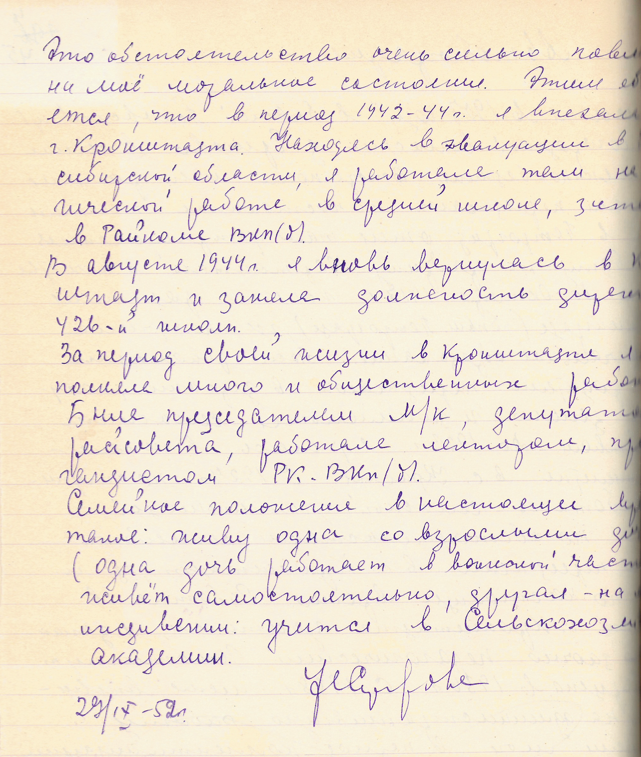 Это обстоятельство очень сильно повли
на моё моральное состояние. Этим об
ется, что в период 1942-44 г. я выехала
г. Кронштадта. Находясь в эвакуации в
сибирской области, я работала там на
гической работе в средней школе, затем
в Райкоме ВКП(б).
В августе 1944 г. я вновь вернулась в К
штадт и заняла должность дирек
426-й школы.
За период своей жизни в Кронштадте я
полняла много и общественных рабо
Была председателем М/К, депутато
райсовета, работала лектором, про
гандистом РК-ВКП(б).
Семейное положение в настоящее вр
такое: живу одна со взрослыми доч
(одна дочь работает в воинской част
живёт самостоятельно, другая - на
иждивении: учится в Сельскохозяй
академии.
29/IX-52г.